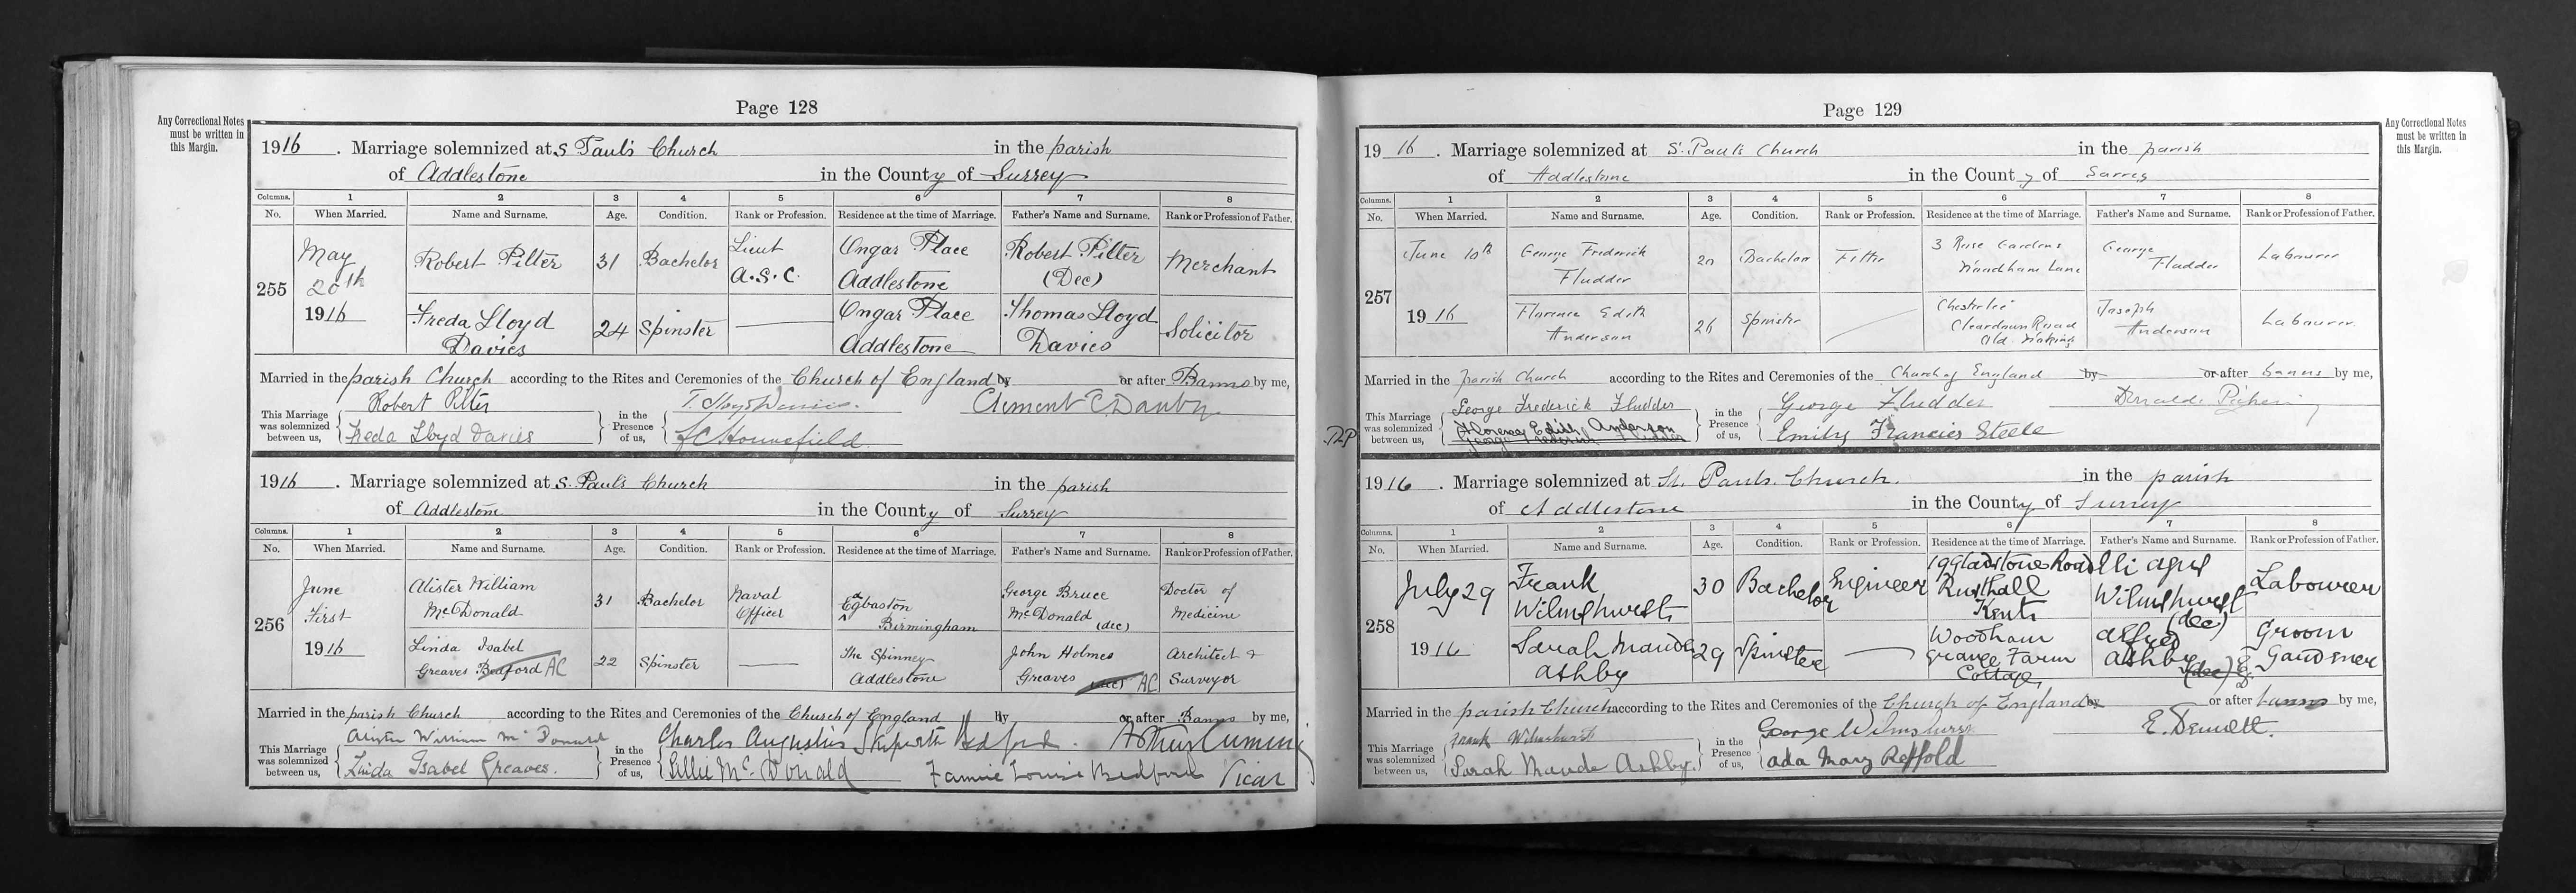 Page 128
Any Correctional Notes
must be written in
this Margin.
1916. Marriage solemnized at S. Paul's Church in the parish
of Addlestone in the County of Surrey
Columns. 1 2 3 4 5 6 7 8
No. When Married. Name and Surname. Age. Condition. Rank or Profession. Residence at the time of Marriage. Father's Name and Surname. Rank or Profession of Father.
255 May 20th 1916 Robert Pilter 31 Bachelor Lieut A.S.C. Ongar Place Addlestone Robert Pilter (Dec) Merchant
Freda Lloyd Davies 24 Spinster Ongar Place Addlestone Thomas Lloyd Davies Solicitor
Married in the parish Church according to the Rites and Ceremonies of the Church of England by or after Banns by me,
This Marriage was solemnized between us, Robert Pilter Freda Lloyd Davies in the Presence of us, T. Lloyd Davies. Clement C Danby
1916. Marriage solemnized at S. Paul's Church in the parish
of Addlestone in the County of Surrey
Columns. 1 2 3 4 5 6 7 8
No. When Married. Name and Surname. Age. Condition. Rank or Profession. Residence at the time of Marriage. Father's Name and Surname. Rank or Profession of Father.
256 June First 1916 Alister William McDonald 31 Bachelor Naval Officer Edgbaston Birmingham George Bruce McDonald (dec) Doctor of Medicine
Linda Isabel Greaves Bedford AC 22 Spinster The Spinney Addlestone John Holmes Greaves (dec) AC Architect & Surveyor
Married in the parish Church according to the Rites and Ceremonies of the Church of England by or after Banns by me,
This Marriage was solemnized between us, Alister William McDonald Linda Isabel Greaves. in the Presence of us, Charles Augustus Skipwith Bedford. Lillie McDonald Fannie Louise Bedford Arthur Cuming Vicar
Page 129
Any Correctional Notes
must be written in
this Margin.
1916. Marriage solemnized at S. Paul's Church in the parish
of Addlestone in the County of Surrey
Columns. 1 2 3 4 5 6 7 8
No. When Married. Name and Surname. Age. Condition. Rank or Profession. Residence at the time of Marriage. Father's Name and Surname. Rank or Profession of Father.
257 June 10th 1916 George Frederick Fludder Bachelor Fitter 3 Rose Gardens Lane George Fludder Labourer
Florence Edith Anderson 26 Spinster Road Old Woking Joseph Anderson Labourer.
Married in the parish Church according to the Rites and Ceremonies of the Church of England by or after banns by me,
This Marriage was solemnized between us, George Frederick Fludder Florence Edith Anderson George Frederick Fludder in the Presence of us, George Fludder Emily Francies Steele
1916. Marriage solemnized at St. Pauls. Church. in the parish
of Addlestone in the County of Surrey
Columns. 1 2 3 4 5 6 7 8
No. When Married. Name and Surname. Age. Condition. Rank or Profession. Residence at the time of Marriage. Father's Name and Surname. Rank or Profession of Father.
258 July 29 1916 Frank Wilmshurst 30 Bachelor Engineer 19 Gladstone Road Rusthall Kent Wilmshurst (dec) Labourer
Sarah Maude Ashby 29 Spinster Woodham Grange Farm Cottage Alfred Ashby (dec) Groom Gardener
Married in the parish Church according to the Rites and Ceremonies of the Church of England by or after banns by me,
This Marriage was solemnized between us, Frank Wilmshurst Sarah Maude Ashby. in the Presence of us, George Wilmshurst Ada Mary Reffold E. Dennett.